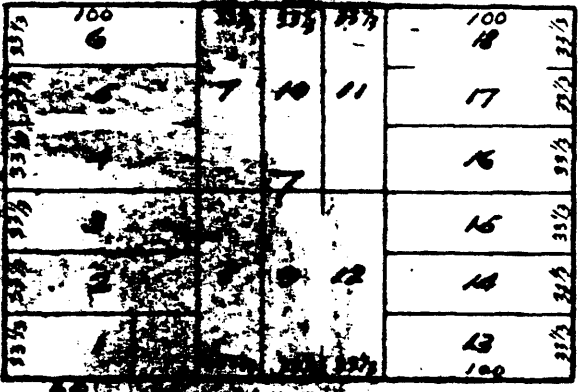 100 33⅓ 33⅓ 33⅓ 100
33⅓ 6 18 33⅓
33⅓ 5 7 10 11 17 33⅓
33⅓ 4 16 33⅓
7
33⅓ 3 15 33⅓
33⅓ 2 9 12 14 33⅓
33⅓ 1 13 33⅓
33⅓ 100